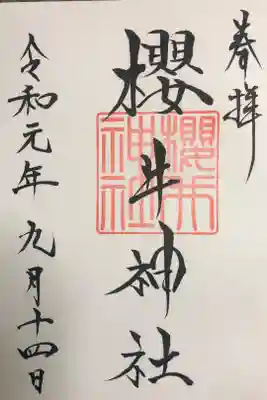 奉拝
櫻井神社
櫻井
神社
令和元年九月十四日